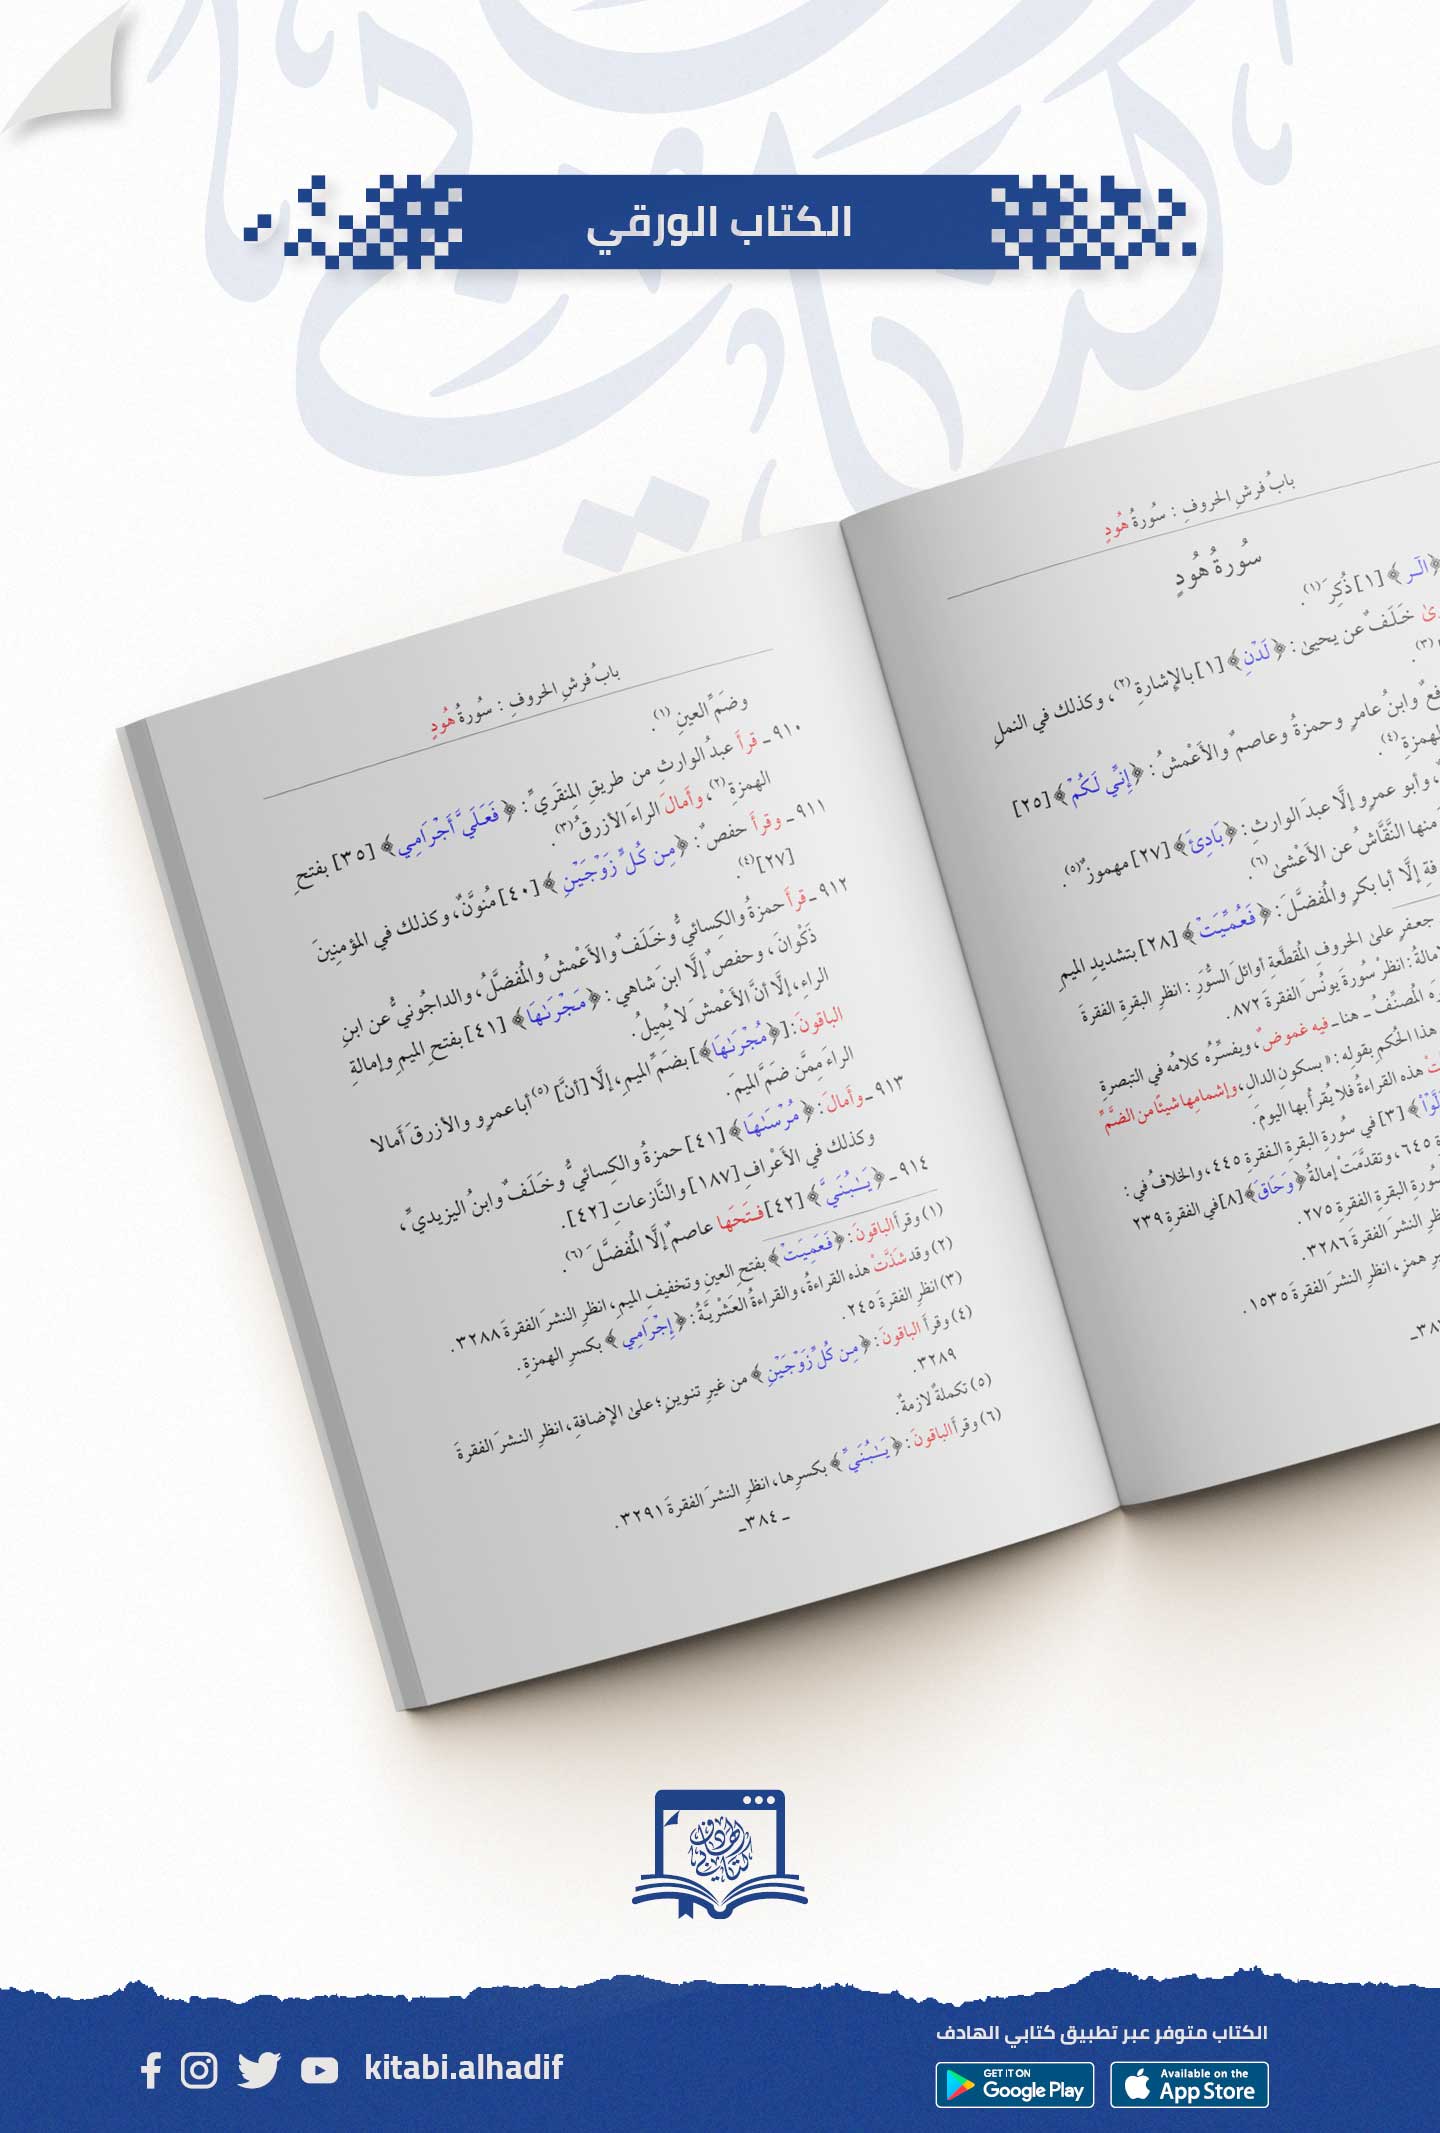 الكتاب الورقي
بابُ فرشِ الحروفِ : سُورةُ هُودٍ
سُورةُ هُودٍ
﴿الٓـر﴾ [١] ذُكِرَ (١) .
خَلَفٌ عن يحيىٰ : ﴿لَدْنِ﴾ [١] بالإشارةِ (٢)، وكذلك في النملِ
(٣) .
وابنُ عامرٍ وحمزةُ وعاصمٌ والأَعْمشُ : ﴿إِنِّي لَكُمْ﴾ [٢٥]
الهمزةِ (٤) .
، وأبو عمرٍو إلَّا عبدَ الوارثِ : ﴿بَادِئَ﴾ [٢٧] مهموزٌ (٥) .
منها النَّقَّاشُ عن الأَعْشىٰ (٦) .
إلَّا أبا بكرٍ والمُفضَّلَ : ﴿فَعُمِّيَتْ﴾ [٢٨] بتشديدِ الميمِ
جعفرٍ علىٰ الحروفِ المُقطَّعةِ أوائلَ السُّوَرِ : انظرِ البقرةِ الفقرةَ
: انظرْ سُورةَ يونُسَ الفقرةَ ٨٧٢ .
المُصنِّفُ ـ هنا ـ فيه غموضٌ ، ويفسِّرُه كلامُه في التبصرةِ
هذا الحُكمِ بقولِه : « بسكونِ الدالِ ، وإشمامِها شيئًا من الضَّمِّ
هذه القراءةُ فلا يُقرأُ بها اليومَ .
[٣] في سُورةِ البقرةِ الفقرةِ ٤٤٥ ، والخلافُ في :
٦٤٥ ، وتقدَّمَتْ إمالةُ ﴿وَحَاقَ﴾ [٨] في الفقرةِ ٢٣٩
سُورةِ البقرةِ الفقرةِ ٢٧٥ .
النشرَ الفقرةَ ٣٢٨٦ .
همزٍ ، انظرِ النشرَ الفقرةَ ١٥٣٥ .
بابُ فرشِ الحروفِ : سُورةُ هُودٍ
وضَمِّ العينِ (١) .
٩١٠ ـ قرأَ عبدُ الوارثِ من طريقِ المِنقَريِّ : ﴿فَعَلَيَّ أَجْرَامِي﴾ [٣٥] بفتحِ
الهمزةِ (٢)، وأَمالَ الراءَ الأزرقُ (٣) .
٩١١ ـ وقرأَ حفصٌ : ﴿مِن كُلٍّ زَوْجَيْنِ﴾ [٤٠] مُنوَّنٌ ، وكذلك في المؤمنِينَ
[٢٧] (٤) .
٩١٢ ـ قرأَ حمزةُ والكِسائيُّ وخَلَفٌ والأَعْمشُ والمُفضَّلُ ، والداجُونيُّ عن ابنِ
ذَكْوانَ ، وحفصٌ إلَّا ابنَ شاهي : ﴿مَجْرَىٰهَا﴾ [٤١] بفتحِ الميمِ وإمالةِ
الراءِ ، إلَّا أنَّ الأَعْمشَ لا يُمِيلُ .
الباقونَ : [﴿مُجْرَىٰهَا﴾] بضَمِّ الميمِ ، إلَّا [أنَّ] (٥) أبا عمرٍو والأزرقَ أَمالا
الراءَ مِمَّن ضَمَّ الميمَ .
٩١٣ ـ وأَمالَ : ﴿مُرْسَىٰهَا﴾ [٤١] حمزةُ والكِسائيُّ وخَلَفٌ وابنُ اليزيديِّ ،
وكذلك في الأَعْرافِ [١٨٧] والنَّازعاتِ [٤٢] .
٩١٤ ـ ﴿يَـٰبُنَيَّ﴾ [٤٢] فـتَحَها عاصمٌ إلَّا المُفضَّلَ (٦) .
(١) وقرأ الباقونَ : ﴿فَعَمِيَتْ﴾ بفتحِ العينِ وتخفيفِ الميمِ ، انظرِ النشرَ الفقرةَ ٣٢٨٨ .
(٢) وقد شَذَّتْ هذه القراءةُ ، والقراءةُ العَشْريَّةُ : ﴿إِجْرَامِي﴾ بكسرِ الهمزةِ .
(٣) انظرِ الفقرةَ ٢٤٥ .
(٤) وقرأَ الباقونَ : ﴿مِن كُلِّ زَوْجَيْنِ﴾ من غيرِ تنوينٍ ؛ علىٰ الإضافةِ ، انظرِ النشرَ الفقرةَ
٣٢٨٩ .
(٥) تكملةٌ لازمةٌ .
(٦) وقرأَ الباقونَ : ﴿يَـٰبُنَيِّ﴾ بكسرِها ، انظرِ النشرَ الفقرةَ ٣٢٩١ .
ـ ٣٨٤ ـ
كتابي الهادف
الكتاب متوفر عبر تطبيق كتابي الهادف
kitabi.alhadif
GET IT ON
Google Play
Available on the
App Store